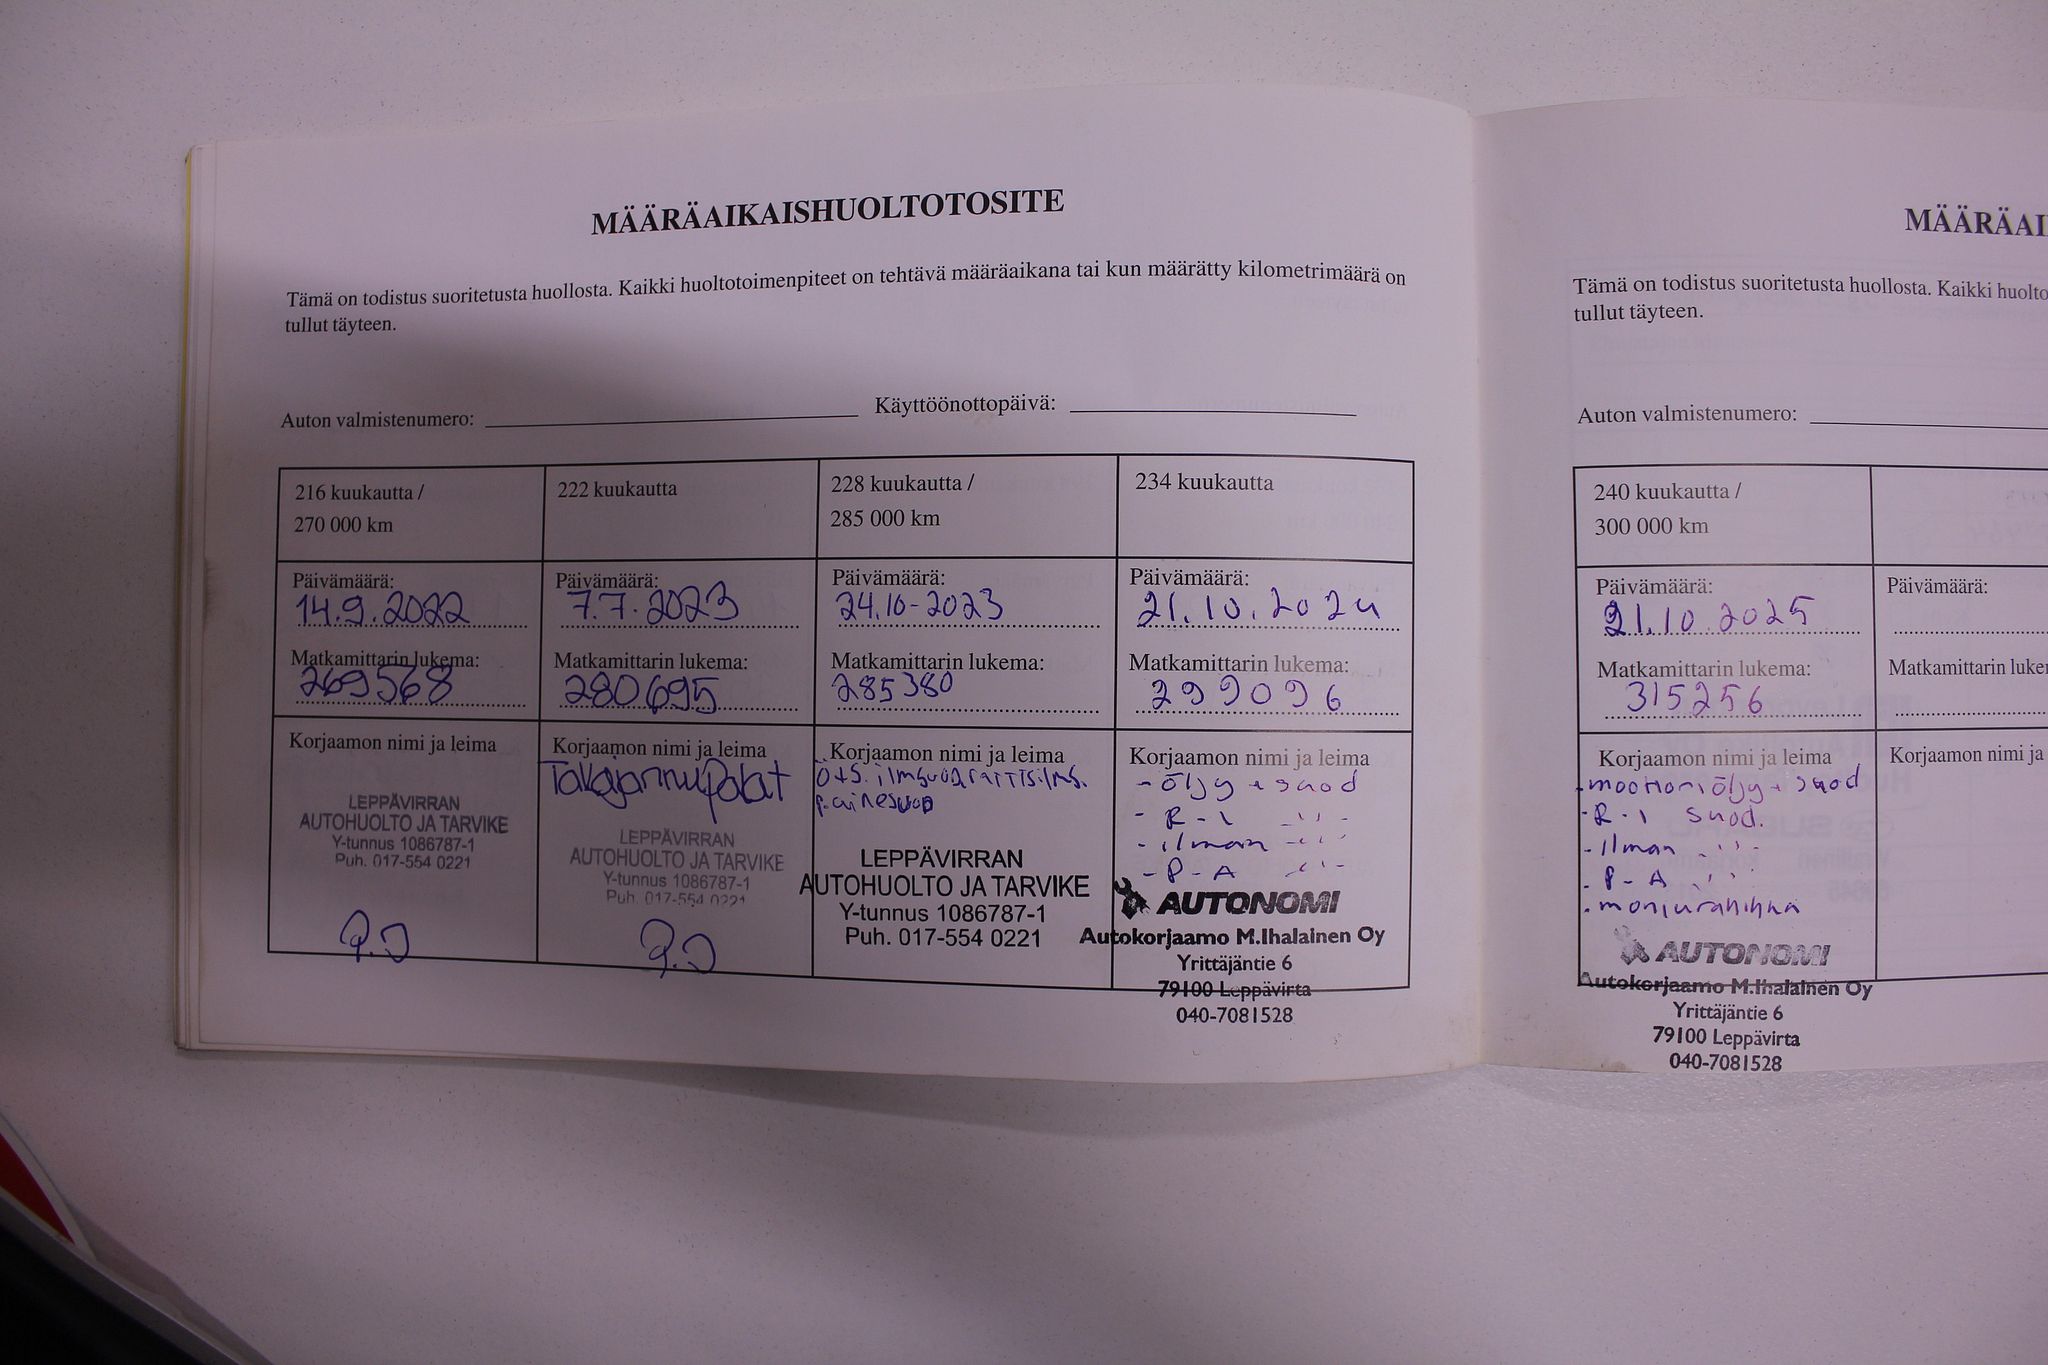 MÄÄRÄAIKAISHUOLTOTOSITE
Tämä on todistus suoritetusta huollosta. Kaikki huoltotoimenpiteet on tehtävä määräaikana tai kun määrätty kilometrimäärä on
tullut täyteen.
Auton valmistenumero:
Käyttöönottopäivä:
216 kuukautta /
270 000 km
Päivämäärä:
14.9.2022
Matkamittarin lukema:
269568
Korjaamon nimi ja leima
LEPPÄVIRRAN
AUTOHUOLTO JA TARVIKE
Y-tunnus 1086787-1
Puh. 017-554 0221
222 kuukautta
Päivämäärä:
7.7.2023
Matkamittarin lukema:
280695
Korjaamon nimi ja leima
Takajarrupalat
LEPPÄVIRRAN
AUTOHUOLTO JA TARVIKE
Y-tunnus 1086787-1
Puh. 017-554 0221
228 kuukautta /
285 000 km
Päivämäärä:
24.10-2023
Matkamittarin lukema:
285380
Korjaamon nimi ja leima
LEPPÄVIRRAN
AUTOHUOLTO JA TARVIKE
Y-tunnus 1086787-1
Puh. 017-554 0221
234 kuukautta
Päivämäärä:
21.10.2024
Matkamittarin lukema:
299096
Korjaamon nimi ja leima
- öljy + suod
- R-i -''-
- ilman -''-
- P-A -''-
AUTONOMI
Autokorjaamo M.Ihalainen Oy
Yrittäjäntie 6
79100 Leppävirta
040-7081528
MÄÄRÄAI
Tämä on todistus suoritetusta huollosta. Kaikki huolto
tullut täyteen.
Auton valmistenumero:
240 kuukautta /
300 000 km
Päivämäärä:
21.10.2025
Matkamittarin lukema:
315256
Korjaamon nimi ja leima
- moottoriöljy + suod
- R-i suod.
- ilman -''-
- P-A -''-
- moniurahihna
AUTONOMI
Autokorjaamo M.Ihalainen Oy
Yrittäjäntie 6
79100 Leppävirta
040-7081528
Päivämäärä:
Matkamittarin lukem
Korjaamon nimi ja